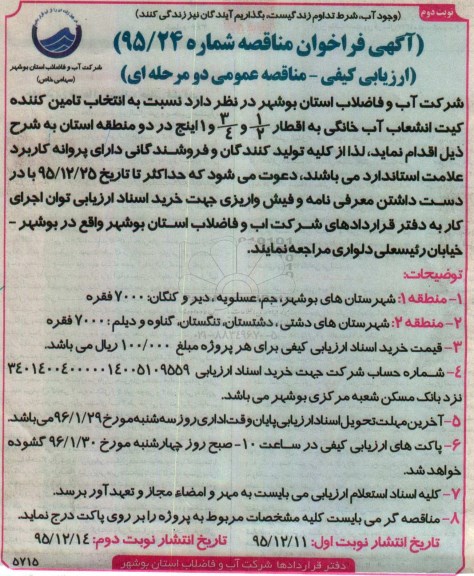 نوبت دوم
(وجود آب، شرط تداوم زندگیست، بگذاریم آیندگان نیز زندگی کنند)
(آگهی فراخوان مناقصه شماره ۹۵/۲۴)
(ارزیابی کیفی - مناقصه عمومی دو مرحله ای)
شرکت آب و فاضلاب استان بوشهر
(سهامی خاص)
شرکت آب و فاضلاب استان بوشهر در نظر دارد نسبت به انتخاب تامین کننده
کیت انشعاب آب خانگی به اقطار ۱/۲ و ۳/۴ و ۱ اینچ در دو منطقه استان به شرح
ذیل اقدام نماید، لذا از کلیه تولید کنندگان و فروشندگانی دارای پروانه کاربرد
علامت استاندارد می باشند، دعوت می شود که حداکثر تا تاریخ ۹۵/۱۲/۲۵ با در
دست داشتن معرفی نامه و فیش واریزی جهت خرید اسناد ارزیابی توان اجرای
کار به دفتر قراردادهای شرکت اب و فاضلاب استان بوشهر واقع در بوشهر -
خیابان رئیسعلی دلواری مراجعه نمایند.
توضیحات:
۱- منطقه ۱: شهرستان های بوشهر، جم، عسلویه، دیر و کنگان: ۷۰۰۰ فقره
۲- منطقه ۲: شهرستان های دشتی، دشتستان، تنگستان، گناوه و دیلم: ۷۰۰۰ فقره
۳- قیمت خرید اسناد ارزیابی کیفی برای هر پروژه مبلغ ۱۰۰/۰۰۰ ریال می باشد.
۴- شماره حساب شرکت جهت خرید اسناد ارزیابی ۳۴۰۱۴۰۰۴۰۰۰۰۰۱۴۰۰۵۱۰۹۵۵۹
نزد بانک مسکن شعبه مرکزی بوشهر می باشد.
۵- آخرین مهلت تحویل اسناد ارزیابی پایان وقت اداری روز سه شنبه مورخ ۹۶/۱/۲۹ می باشد.
۶- پاکت های ارزیابی کیفی در ساعت ۱۰- صبح روز چهارشنبه مورخ ۹۶/۱/۳۰ گشوده
خواهد شد.
۷- کلیه اسناد استعلام ارزیابی می بایست به مهر و امضاء مجاز و تعهدآور برسد.
۸- مناقصه گر می بایست کلیه مشخصات مربوط به پروژه را بر روی پاکت درج نماید.
تاریخ انتشار نوبت اول: ۹۵/۱۲/۱۱ تاریخ انتشار نوبت دوم: ۹۵/۱۲/۱۴
دفتر قراردادها شرکت آب و فاضلاب استان بوشهر
۵۷۱۵